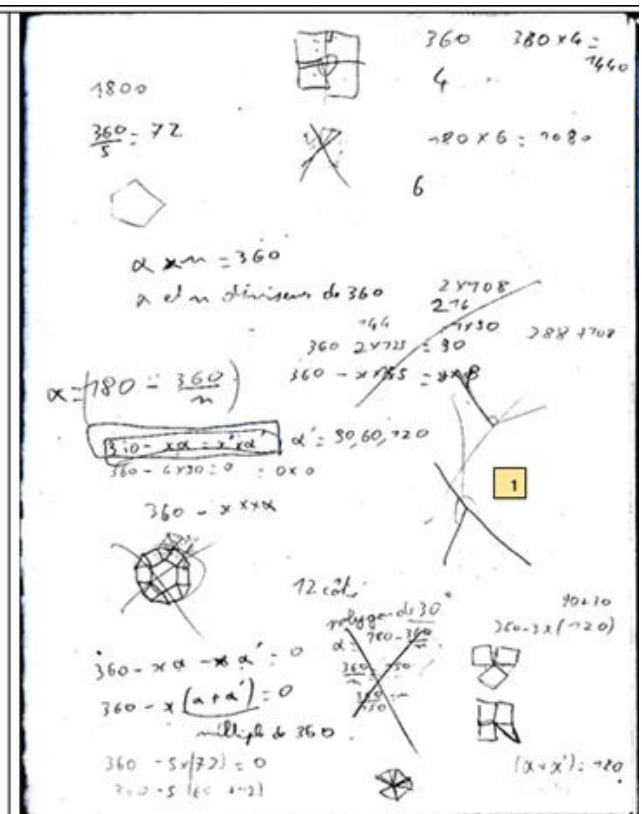 360 380 x 4 =
1440
4
1800
360/5 = 72
180 x 6 = 1080
6
α x n = 360
α et n diviseurs de 360
2 x 108
216
144
1 x 90
288 + 108
360 2 x 135 = 90
α = (180 - 360/n)
360 - xα = x'xα' α' = 90, 60, 120
360 - 4 x 90 = 0 = 0 x 0
1
360 - x x x α
12 côtés
polygone de 30°
α = 180 - 360/n
90 + 30
360 - 3 x (120)
360 - xα - x α' = 0
360 - x (α + α') = 0
multiple de 360
360 - 5 x (72) = 0
(α + α') = 120